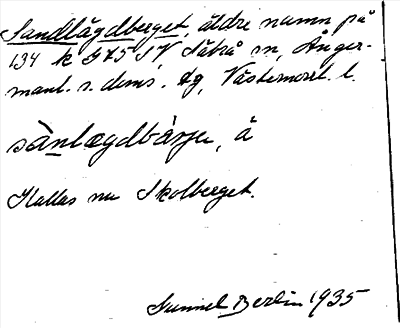 Sandlägdberget, äldre namn på
134 k G75 SV Sätrå sn, Ånger-
manl. s. doms. tg, Västernorrl. l.
sànlægdbàrje, å
Kallas nu Skolberget.
Gunnel Berlin 1935